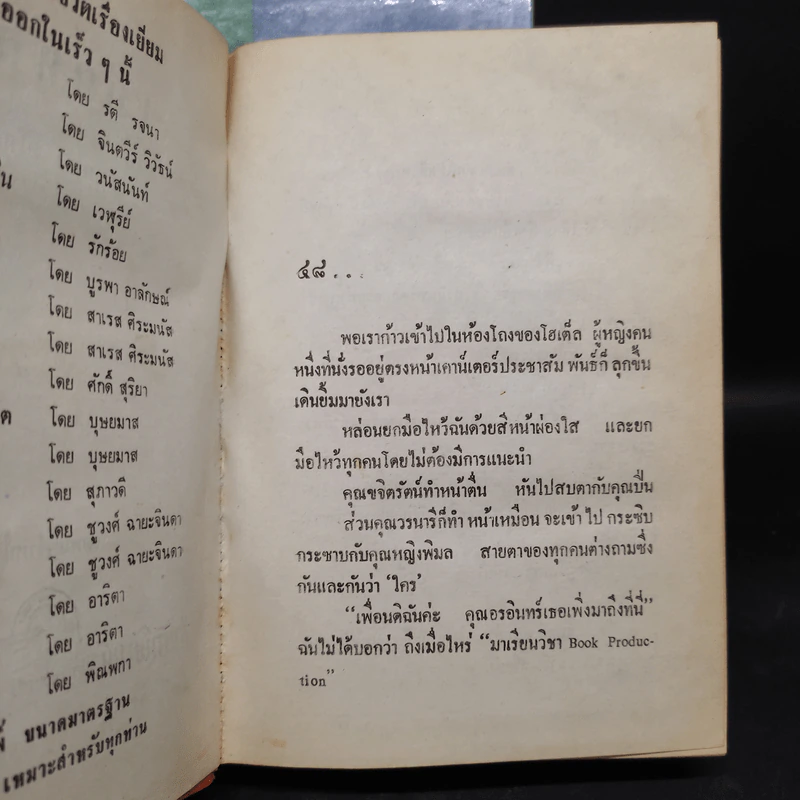 เรื่องเยี่ยม
ออกในเร็ว ๆ นี้
โดย รตี รจนา
โดย จินตวีร์ วิวัธน์
โดย วนัสนันท์
โดย เวพุรีย์
โดย รักร้อย
โดย บูรพา อาลักษณ์
โดย สาเรส ศิระมนัส
โดย สาเรส ศิระมนัส
โดย ศักดิ์ สุริยา
โดย บุษยมาส
โดย บุษยมาส
โดย สุภาวดี
โดย ชูวงศ์ ฉายะจินดา
โดย ชูวงศ์ ฉายะจินดา
โดย อาริตา
โดย อาริตา
โดย พิณพกา
ขนาดมาตรฐาน
เหมาะสำหรับทุกท่าน
๔๘...
พอเราก้าวเข้าไปในห้องโถงของโฮเต็ล ผู้หญิงคน
หนึ่งที่นั่งรออยู่ตรงหน้าเคาน์เตอร์ประชาสัม พันธ์ก็ ลุกขึ้น
เดินยิ้มมายังเรา
หล่อนยกมือไหว้ฉันด้วยสีหน้าผ่องใส และยก
มือไหว้ทุกคนโดยไม่ต้องมีการแนะนำ
คุณขจิตรัตน์ทำหน้าตื่น หันไปสบตากับคุณปิ่น
ส่วนคุณวรนารีก็ทำ หน้าเหมือน จะเข้า ไป กระซิบ
กระซาบกับคุณหญิงพิมล สายตาของทุกคนต่างถามซึ่ง
กันและกันว่า ‘ใคร’
“เพื่อนดิฉันค่ะ คุณอรอินทร์เธอเพิ่งมาถึงที่นี่”
ฉันไม่ได้บอกว่า ถึงเมื่อไหร่ “มาเรียนวิชา Book Produc-
tion”